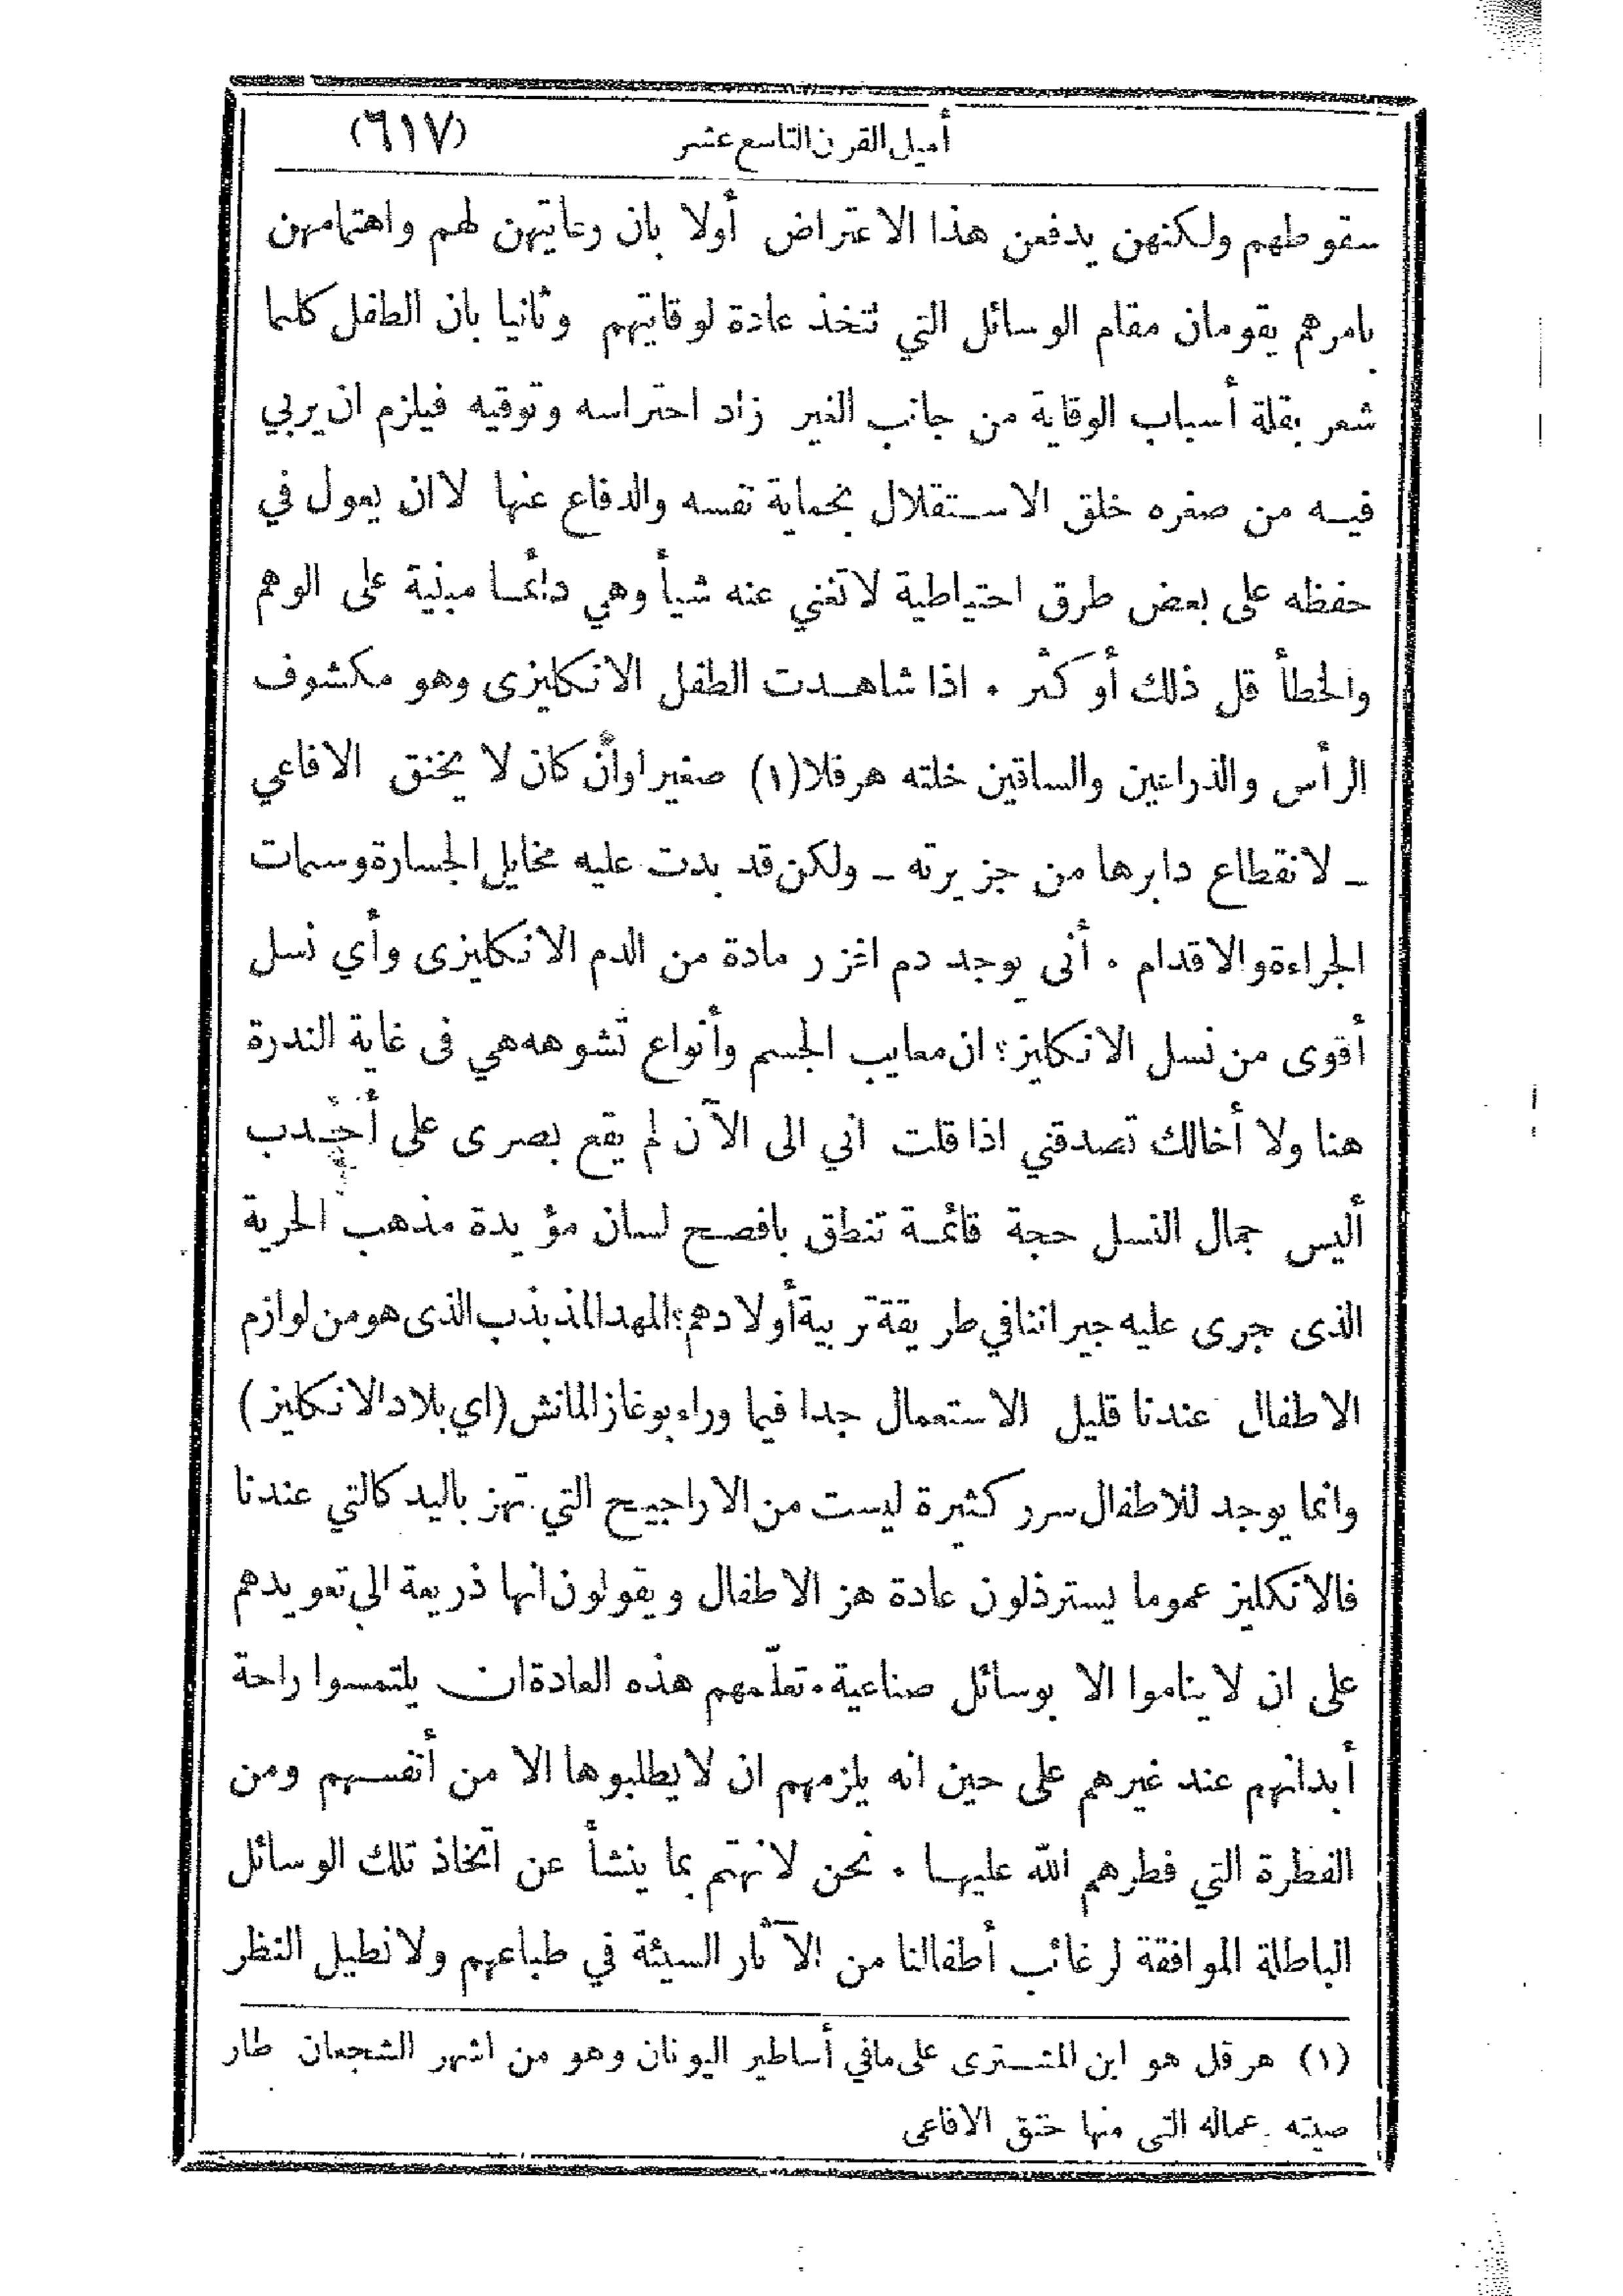 أميل القرن التاسع عشر (٦١٧)
سقوطهم ولكنهن يدفعن هذا الاعتراض أولا بان رعايتهن لهم واهتمامهن
بامرهم يقومان مقام الوسائل التي تتخذ عادة لوقايتهم وثانيا بان الطفل كلما
شعر بقلة أسباب الوقاية من جانب الغير زاد احتراسه وتوقيه فيلزم ان يربي
فيه من صغره خلق الاستقلال بحماية نفسه والدفاع عنها لاان يعول في
حفظه على بعض طرق احتياطية لاتغني عنه شيأ وهي دائما مبنية على الوهم
والخطأ قل ذلك أو كثر . اذا شاهدت الطفل الانكليزى وهو مكشوف
الرأس والذراعين والساقين خلته هرقلا (١) صغيرا وأن كان لا يخنق الافاعي
ـ لانقطاع دابرها من جزيرته ـ ولكن قد بدت عليه مخايل الجسارة وسمات
الجراءة والاقدام . أنى يوجد دم اغزر مادة من الدم الانكليزى وأي نسل
أقوى من نسل الانكليز؟ ان معايب الجسم وأنواع تشوهه هي فى غاية الندرة
هنا ولا أخالك تصدقني اذا قلت اني الى الآن لم يقع بصرى على أحدب
أليس جمال النسل حجة قائمة تنطق بافصح لسان مؤيدة مذهب الحرية
الذى جرى عليه جيراننا في طريقة تربية أولادهم؟ المهد المذبذب الذى هو من لوازم
الاطفال عندنا قليل الاستعمال جدا فيما وراء بوغاز المانش (اي بلاد الانكليز)
وانما يوجد للاطفال سرر كثيرة ليست من الاراجيح التي تهز باليد كالتي عندنا
فالانكليز عموما يسترذلون عادة هز الاطفال ويقولون انها ذريعة الى تعويدهم
على ان لا يناموا الا بوسائل صناعية. تعلّمهم هذه العادة ان يلتمسوا راحة
أبدانهم عند غيرهم على حين انه يلزمهم ان لا يطلبوها الا من أنفسهم ومن
الفطرة التي فطرهم الله عليها . نحن لا نهتم بما ينشأ عن اتخاذ تلك الوسائل
الباطلة الموافقة لرغائب أطفالنا من الآثار السيئة في طباعهم ولا نطيل النظر
(١) هرقل هو ابن المشترى على مافي أساطير اليونان وهو من اشهر الشجعان طار
صيته عماله التى منها خنق الافاعى